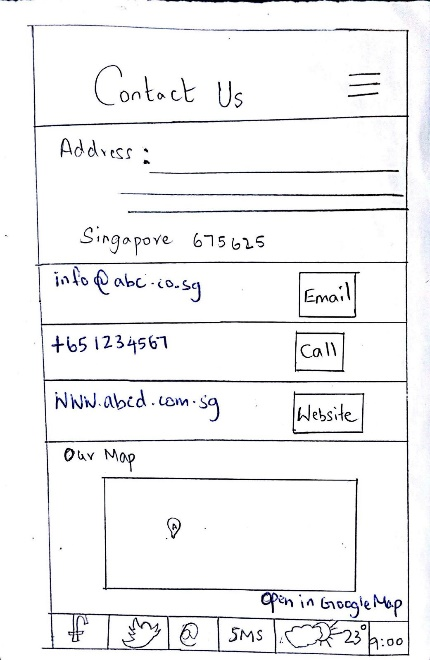 Contact Us
Address :
Singapore 675625
info@abc.co.sg
Email
+651234567
Call
WWW.abcd.com.sg
Website
Our Map
A
Open in Google Map
f @ SMS 23° 9:00